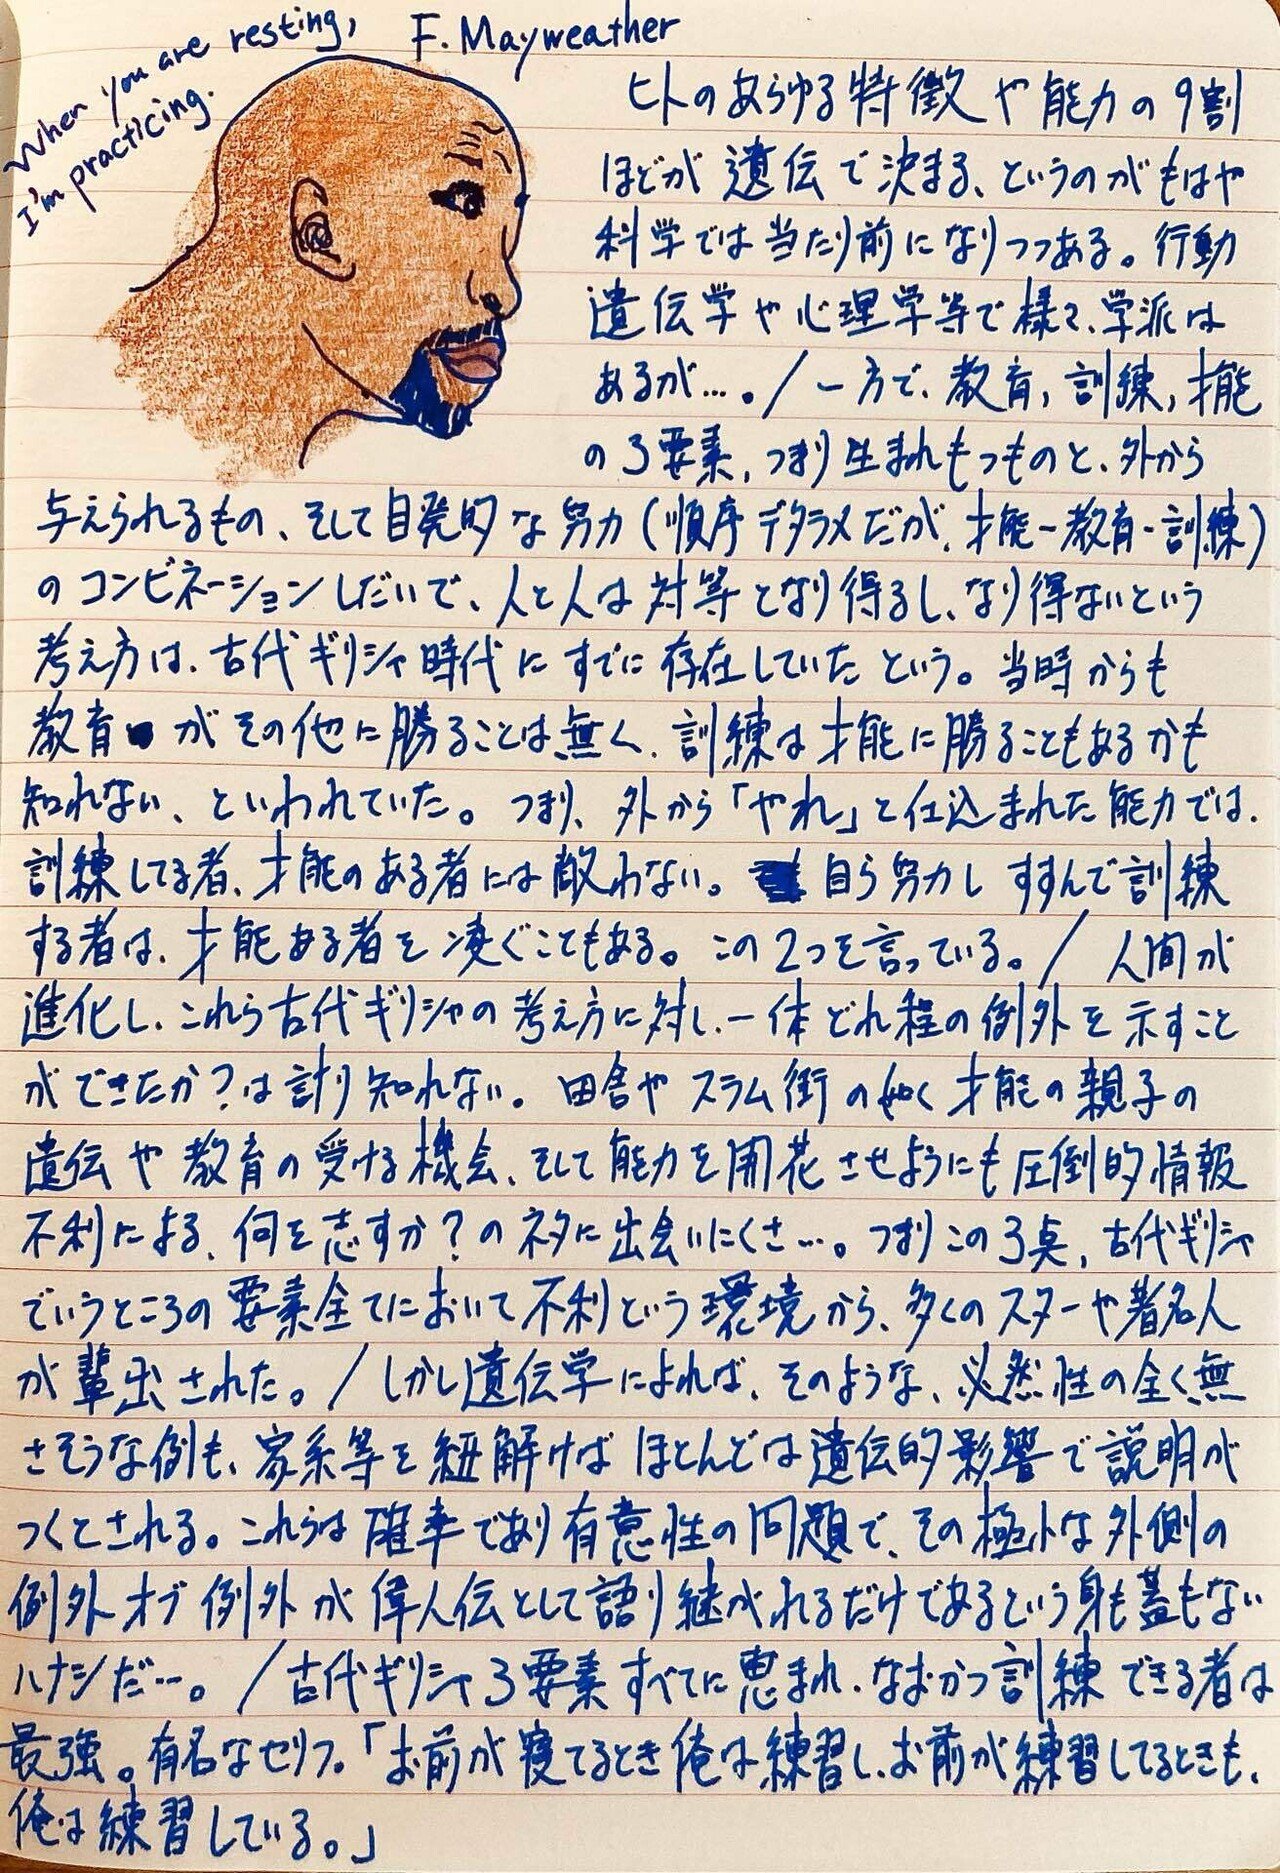 When you are resting,
I'm practicing.
F. Mayweather
ヒトのあらゆる特徴や能力の9割
ほどが遺伝で決まる、というのがもはや
科学では当たり前になりつつある。行動
遺伝学や心理学等で様々、学派は
あるが…。/一方で、教育,訓練,才能
の3要素,つまり生まれもつものと、外から
与えられるもの、そして自発的な努力(順序デタラメだが、才能-教育-訓練)
のコンビネーションしだいで、人と人は対等となり得るし、なり得ないという
考え方は、古代ギリシャ時代にすでに存在していたという。当時からも
教育がその他に勝ることは無く、訓練は才能に勝ることもあるかも
知れない、といわれていた。つまり、外から「やれ」と仕込まれた能力では、
訓練してる者、才能のある者には敵わない。自ら努力しすすんで訓練
する者は、才能ある者を凌ぐこともある。この2つを言っている。/人間が
進化し、これら古代ギリシャの考え方に対し、一体どれ程の例外を示すこと
ができたか?は計り知れない。田舎やスラム街の如く才能の親子の
遺伝や教育の受ける機会、そして能力を開花させようにも圧倒的情報
不利による、何を志すか?のネタに出会いにくさ…。つまりこの3点,古代ギリシャ
でいうところの要素全てにおいて不利という環境から、多くのスターや著名人
が輩出された。/しかし遺伝学によれば、そのような、必然性の全く無
さそうな例も、家系等を紐解けばほとんどは遺伝的影響で説明が
つくとされる。これらは確率であり有意性の問題で、その極小な外側の
例外オブ例外が偉人伝として語り継がれるだけであるという身も蓋もない
ハナシだ…。/古代ギリシャ3要素すべてに恵まれ、なおかつ訓練できる者は
最強。有名なセリフ。「お前が寝てるとき俺は練習し、お前が練習してるときも、
俺は練習している。」